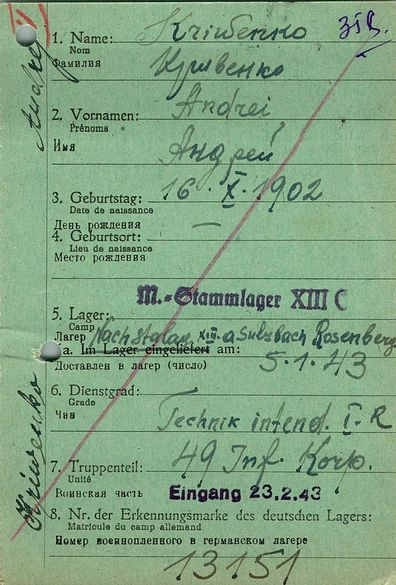 Andrej
Kriwenko
1. Name: Kriwenko
Nom
Фамилия Кривенко
2. Vornamen: Andrei,
Prénoms
Имя Андрей
3. Geburtstag: 16. X. 1902
Date de naissance
День рождения —
4. Geburtsort:
Lieu de naissance
Место рождения
M.-Stammlager XIII C
5. Lager:
Camp
Лагер Nach Stalag XIII a Sulzbach Rosenberg
a. Im Lager eingeliefert am: 5.1.43
Доставлен в лагер (число)
6. Dienstgrad:
Grade
Чин Technik intend. I-R
7. Truppenteil: 49 Inf. Korp.
Unité
Воинская часть Eingang 23.2.43
8. Nr. der Erkennungsmarke des deutschen Lagers:
Matricule du camp allemand
Номер военнопленного в германском лагере
13151